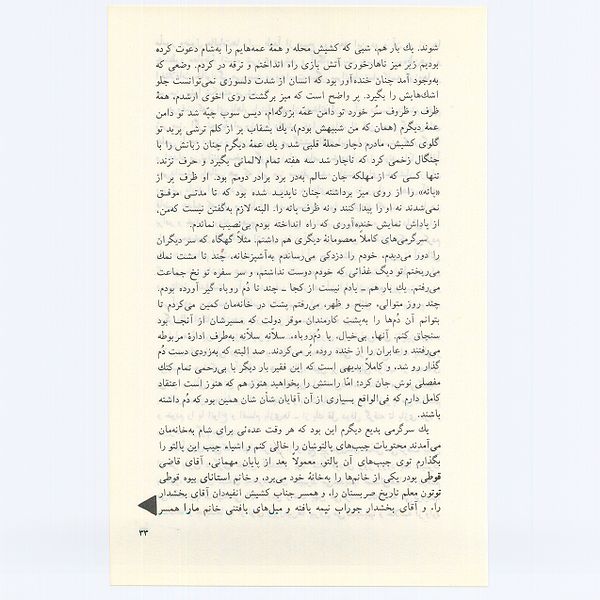 شوند. یك بار هم، شبی که کشیش محله و همهٔ عمه‌هایم را به‌شام دعوت کرده
بودیم زیر میز ناهارخوری آتش بازی راه انداختم و ترقه در کردم. وضعی که
به‌وجود آمد چنان خنده‌آور بود که انسان از شدت دلسوزی نمی‌توانست جلو
اشك‌هایش را بگیرد. پر واضح است که میز برگشت روی اخوی ارشدم، همهٔ
ظرف و ظروف سُر خورد تو دامن عمّه بزرگه‌ام، دیس سوپ چپّه شد تو دامن
عمهٔ دیگرم (همان که من شبیهش بودم)، یك بشقاب پر از کلم ترشی پرید تو
گلوی کشیش، مادرم دچار حملهٔ قلبی شد و یك عمهٔ دیگرم چنان زبانش را با
چنگال زخمی کرد که ناچار شد سه هفته تمام لالمانی بگیرد و حرف نزند.
تنها کسی که از مهلکه جان سالم به‌در برد برادر دومم بود. او ظرف پر از
«پانه» را از روی میز برداشته چنان ناپدید شده بود که تا مدتی موفق
نمی‌شدند نه او را پیدا کنند و نه ظرف پانه را. البته لازم به‌گفتن نیست که‌من،
از پاداش نمایش خنده‌آوری که راه انداخته بودم بی‌نصیب نماندم.
سرگرمی‌های کاملاً معصومانهٔ دیگری هم داشتم. مثلاً گهگاه که سر دیگران
را دور می‌دیدم، خودم را دزدکی می‌رساندم به‌آشپزخانه، چند تا مشت نمك
می‌ریختم تو دیگ غذائی که خودم دوست نداشتم، و سر سفره تو نخ جماعت
می‌رفتم. یك بار هم ــ یادم نیست از کجا ــ چند تا دُم روباه گیر آورده بودم.
چند روز متوالی، صبح و ظهر، می‌رفتم پشت در خانه‌مان کمین می‌کردم تا
بتوانم آن دُم‌ها را به‌پشت کارمندان موقر دولت که مسیرشان از آنجا بود
سنجاق کنم. آنها، بی‌خیال، با دُم‌روباه، سلاّنه سلاّنه به‌طرف ادارهٔ مربوطه
می‌رفتند و عابران را از خنده روده بُر می‌کردند. صد البته که به‌زودی دست دُم
گذار رو شد، و کاملاً بدیهی است که این فقیر بار دیگر با بی‌رحمی تمام کتك
مفصلی نوش جان کرد؛ امّا راستش را بخواهید هنوز هم که هنوز است اعتقاد
کامل دارم که فی‌الواقع بسیاری از آن آقایان شأن شان همین بود که دُم داشته
باشند.
یك سرگرمی بدیع دیگرم این بود که هر وقت عده‌ئی برای شام به‌خانه‌مان
می‌آمدند محتویات جیب‌های پالتوشان را خالی کنم و اشیاء جیب این پالتو را
بگذارم توی جیب‌های آن پالتو. معمولاً بعد از پایان مهمانی، آقای قاضی
قوطی پودر یکی از خانم‌ها را به‌خانهٔ خود می‌برد، و خانم استانای بیوه قوطی
توتون معلم تاریخ صربستان را، و همسر جناب کشیش انفیه‌دان آقای بخشدار
را، و آقای بخشدار جوراب نیمه بافته و میل‌های بافتنی خانم مارا همسر
۳۳